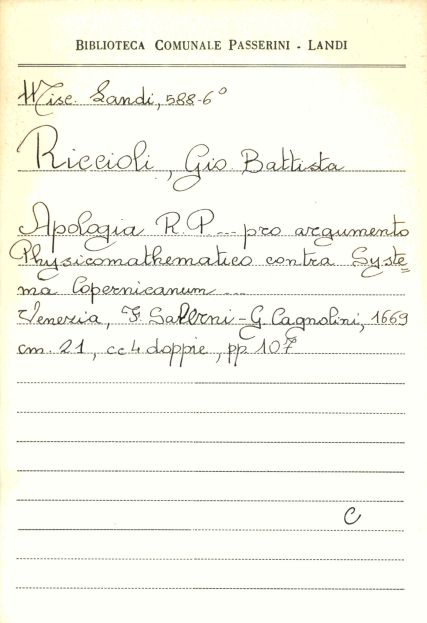 BIBLIOTECA COMUNALE PASSERINI - LANDI
Misc. Landi, 588-6°
Riccioli, Gio. Battista
Apologia R.P... pro argumento
Physicomathematico contra Syste=
ma Copernicanum ...
Venezia, F. Salerni - G. Cagnolini, 1669
cm. 21, cc 4 doppie, pp. 107
C